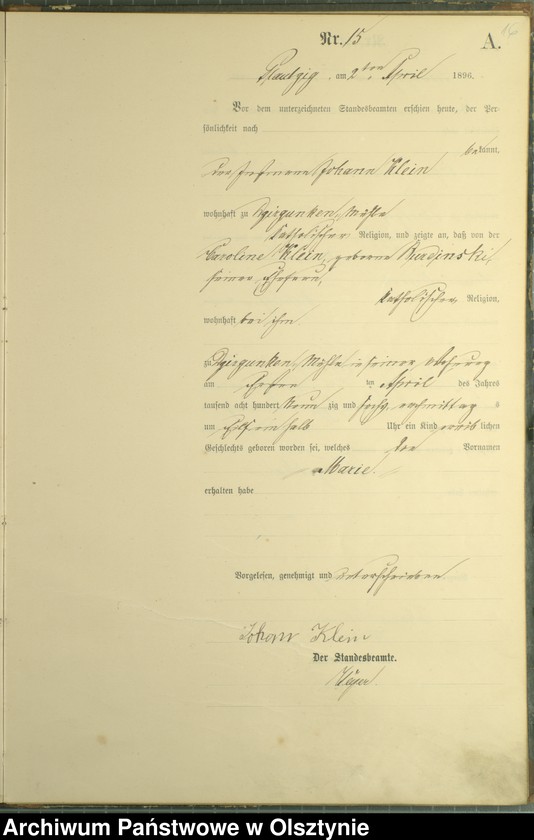 Nr. 15
A.
am 2ten April 1896.
Vor dem unterzeichneten Standesbeamten erschien heute, der Per-
sönlichkeit nach
bekannt,
Johann Klein
wohnhaft zu Dzirgunken Mühle
katholischer Religion, und zeigte an, daß von der
Caroline Klein, geborene
seiner Ehefrau,
katholischer Religion,
wohnhaft bei ihm
zu Dzirgunken Mühle in seiner Wohnung
am ersten ten April des Jahres
tausend acht hundert neun zig und sechs nachmittag s
um elf ein halb Uhr ein Kind weib lichen
Geschlechts geboren worden sei, welches den Vornamen
Marie.
erhalten habe
Vorgelesen, genehmigt und unterschrieben
Johann Klein
Der Standesbeamte.
Archiwum Państwowe w Olsztynie